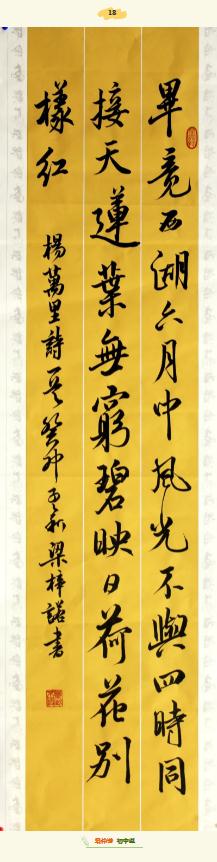 18
畢竟西湖六月中風光不與四時同
接天蓮葉無窮碧映日荷花別
樣紅 楊萬里詩一首癸卯孟秋梁梓諾書
初中组